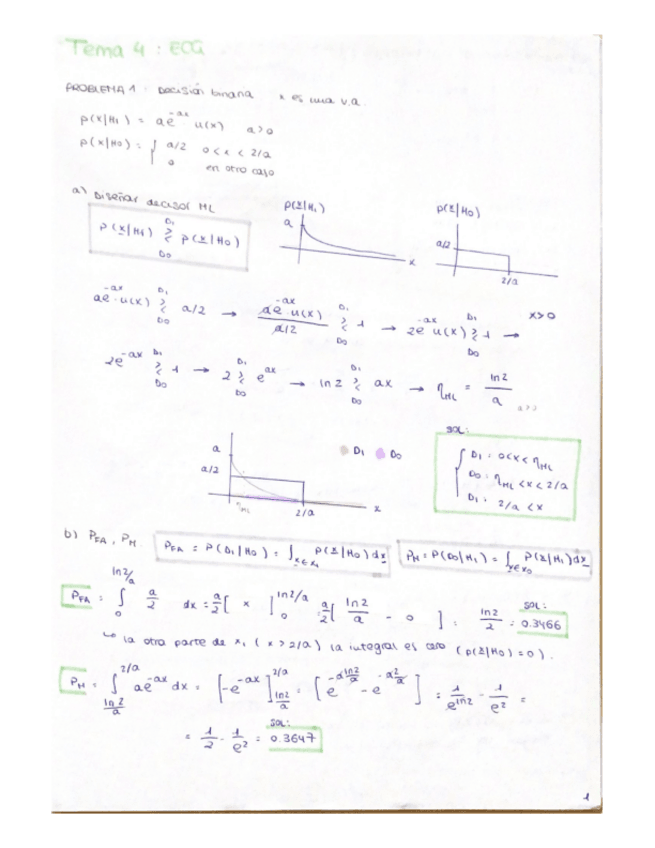 Tema 4 : ECG
PROBLEMA 1 : Decisión binaria x es una v.a.
p(x|H₁) = ae^-ax u(x) a>0
p(x|H₀) = { a/2 0<x<2/a
0 en otro caso
a) Diseñar decisor ML
p(x|H₁) ≷ p(x|H₀) D₁ D₀
p(x|H₁) a x
p(x|H₀) a/2 2/a
ae^-ax · u(x) ≷ a/2 → ae^-ax · u(x) / a/2 ≷ 1 → 2e^-ax u(x) ≷ 1 → x>0
2e^-ax ≷ 1 → 2 ≷ e^ax → ln2 ≷ ax → η_ML = ln2/a a>0
a a/2 η_ML 2/a x D₁ D₀
SOL:
D₁ : 0<x<η_ML
D₀ : η_ML<x<2/a
D₁ : 2/a <x
b) P_FA, P_M. P_FA = P(D₁|H₀) = ∫_x∈X₁ p(x|H₀)dx P_M = P(D₀|H₁) = ∫_x∈X₀ p(x|H₁)dx
P_FA = ∫_0^ln2/a a/2 dx = a/2 [ x ]_0^ln2/a = a/2 [ ln2/a - 0 ] = ln2/2 = SOL: 0.3466
↳ la otra parte de x₁ ( x > 2/a) la integral es cero (p(x|H₀) = 0).
P_M = ∫_ln2/a^2/a ae^-ax dx = [-e^-ax]_ln2/a^2/a = [e^-a ln2/a - e^-a 2/a] = 1/e^ln2 - 1/e² =
= 1/2 - 1/e² = SOL: 0.3647
1